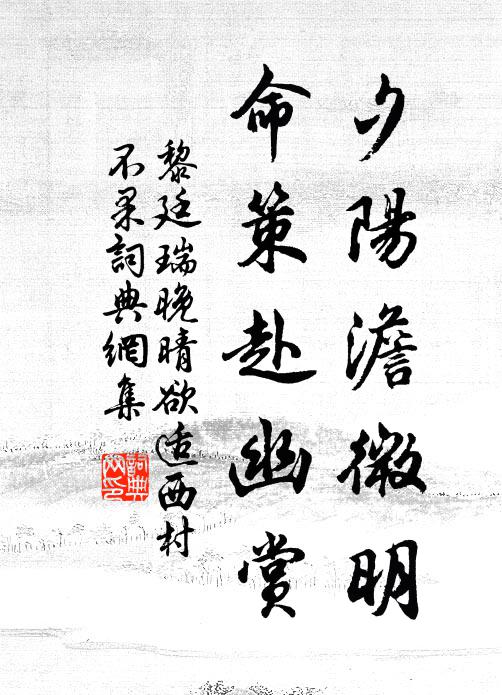 夕陽澹微明
命策赴幽賞
黎廷瑞晚晴欲适西村
不果詞典網集
詞典網印